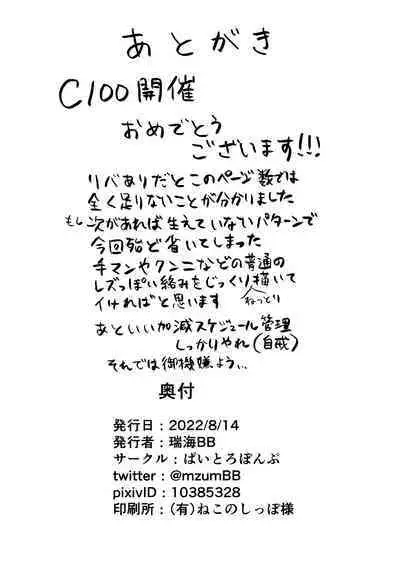 あとがき
C100開催
おめでとう
ございます!!!
リバありだとこのページ数では
全く足りないことが分かりました
もし次があれば生えていないパターンで
今回殆ど省いてしまった
手マンやクンニなどの普通の
レズっぽい絡みをじっくりねっとり描いて
イければと思います
あといい加減スケジュール管理
しっかりやれ(自戒)
それでは御機嫌よう…
奥付
発行日:2022/8/14
発行者:瑞海BB
サークル:ぱいとろぼんぷ
twitter:@mzumBB
pixivID:10385328
印刷所:(有)ねこのしっぽ様